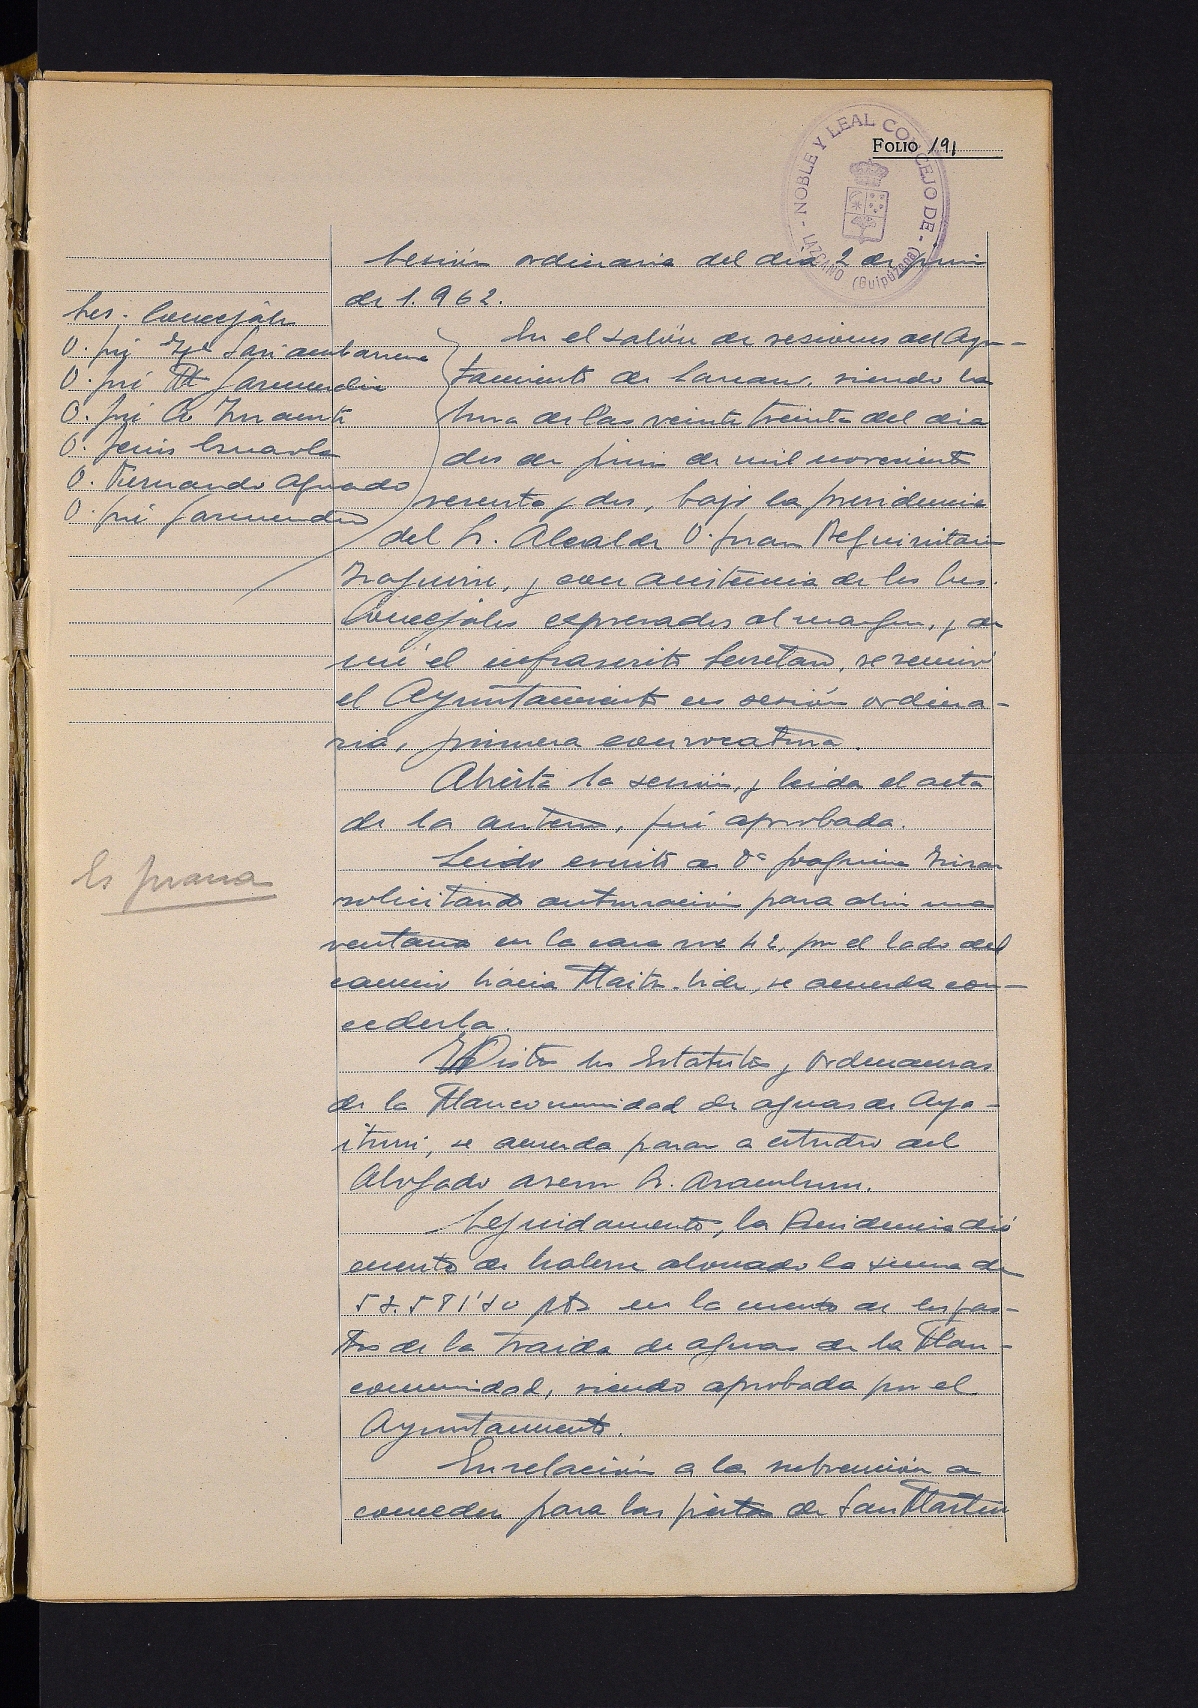 FOLIO 191
NOBLE Y LEAL CONCEJO DE - LAZCANO (Guipúzcoa)
Sesión ordinaria del dia 2 de junio
de 1.962.
Sres. Concejales
D. José
D. José Mª Garmendia
D. José A. Insausti
D. Jesús
D. Fernando Aguado
D. José Garmendia
En el salón de sesiones del Ayun-
tamiento de Lazcano, siendo la
hora de las veinte treinta del dia
dos de junio de mil novecientos
sesenta y dos, bajo la presidencia
del Sr. Alcalde D. Juan Aeguinitari
Izaguirre, y con asistencia de los Sres.
Concejales expresados al margen, y de
mí el infrascrito Secretario, se reunió
el Ayuntamiento en sesión ordina-
ria, primera convocatoria.
Abierta la sesión, y leida el acta
de la anterior, fué aprobada.
Es Juana
Leido escrito de Dª Joaquina
solicitando autorización para abrir una
ventana en la casa nº 42, por el lado del
camino hácia Maita-bide, se acuerda con-
cederla.
Vistos los Estatutos y Ordenanzas
de la Mancomunidad de aguas de Aya-
iturri, se acuerda pasar a estudio del
Abogado asesor Sr. Aramburu.
Seguidamente, la Presidencia dió
cuenta de haberse abonado la suma de
pts en la cuenta de los gas-
tos de la traida de aguas de la Man-
comunidad, siendo aprobada por el
Ayuntamiento.
En relación a la subvención a
conceder para las fiestas de San Martin